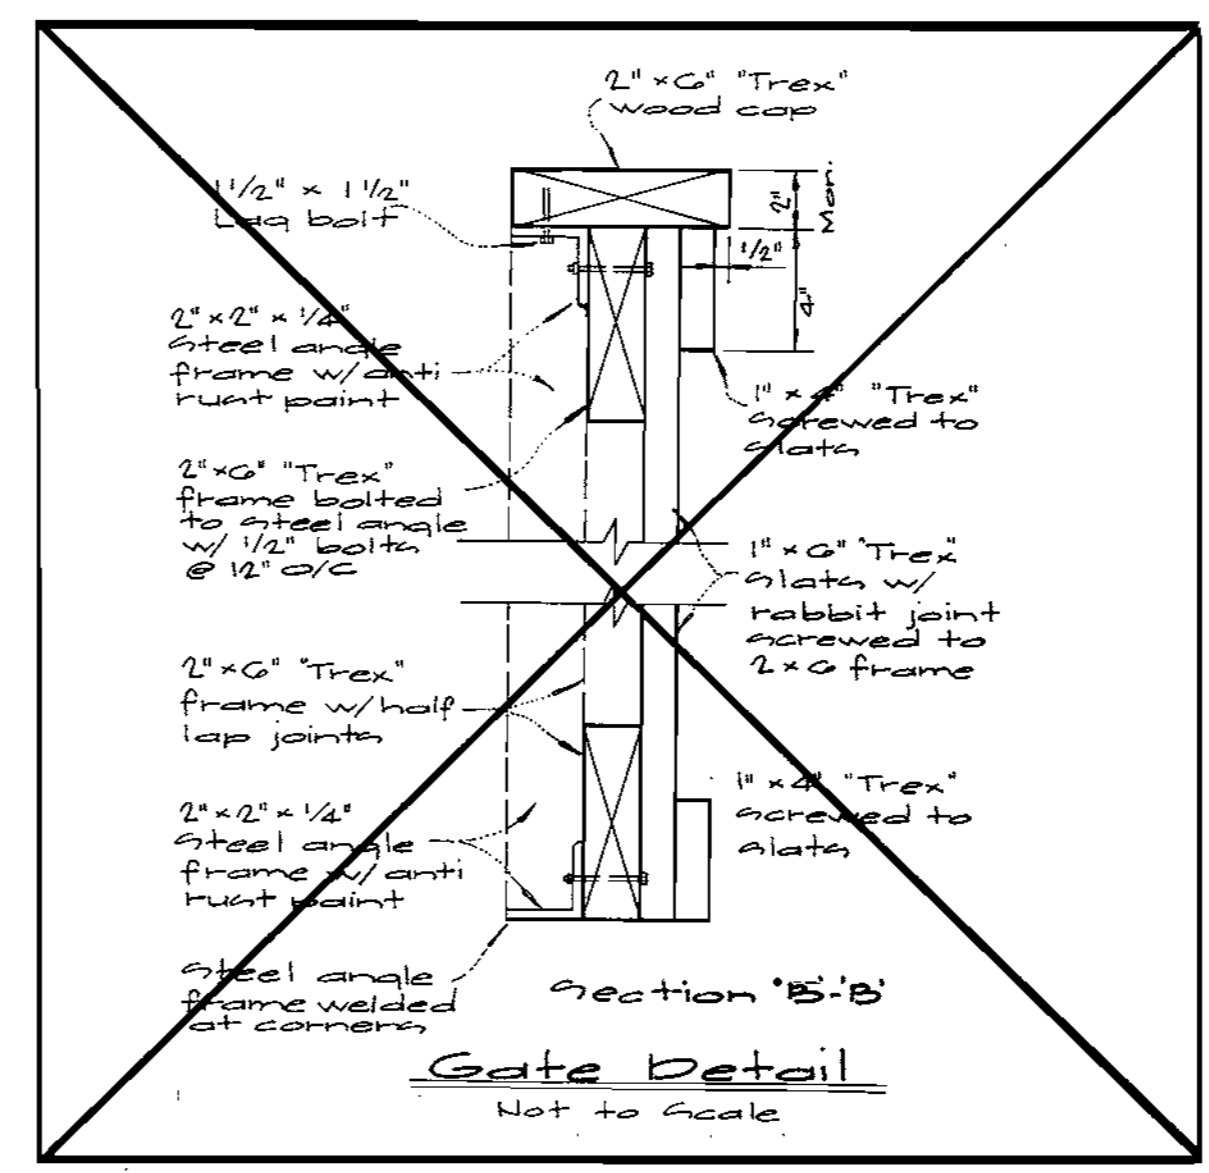 2" x 6" "Trex"
wood cap
1 1/2" x 1 1/2"
Lag bolt
2"
Mori.
1/2"
4"
2" x 2" x 1/4"
Steel angle
frame w/ anti
rust paint
1" x 4" "Trex"
screwed to
slats
2" x 6" "Trex"
frame bolted
to steel angle
w/ 1/2" bolts
@ 12" O/C
1" x 6" "Trex"
slats w/
rabbit joint
screwed to
2 x 6 frame
2" x 6" "Trex"
frame w/ half
lap joints
1" x 4" "Trex"
screwed to
slats
2" x 2" x 1/4"
Steel angle
frame w/ anti
rust paint
Steel angle
frame welded
at corners
Section 'B'-'B'
Gate Detail
Not to Scale